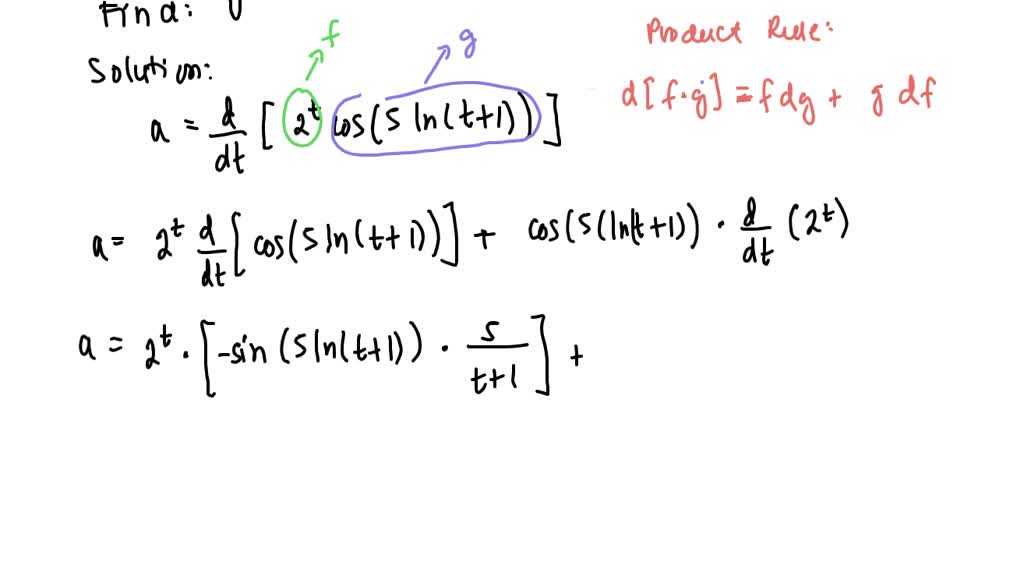 Find:
f
g
Product Rule:
Solution:
d[f·g] = f dg + g df
a = d/dt [2^t cos(5 ln(t+1))]
a = 2^t d/dt [cos(5 ln(t+1))] + cos(5(ln(t+1)) · d/dt (2^t)
a = 2^t · [-sin (5 ln(t+1)) · 5/(t+1)] +